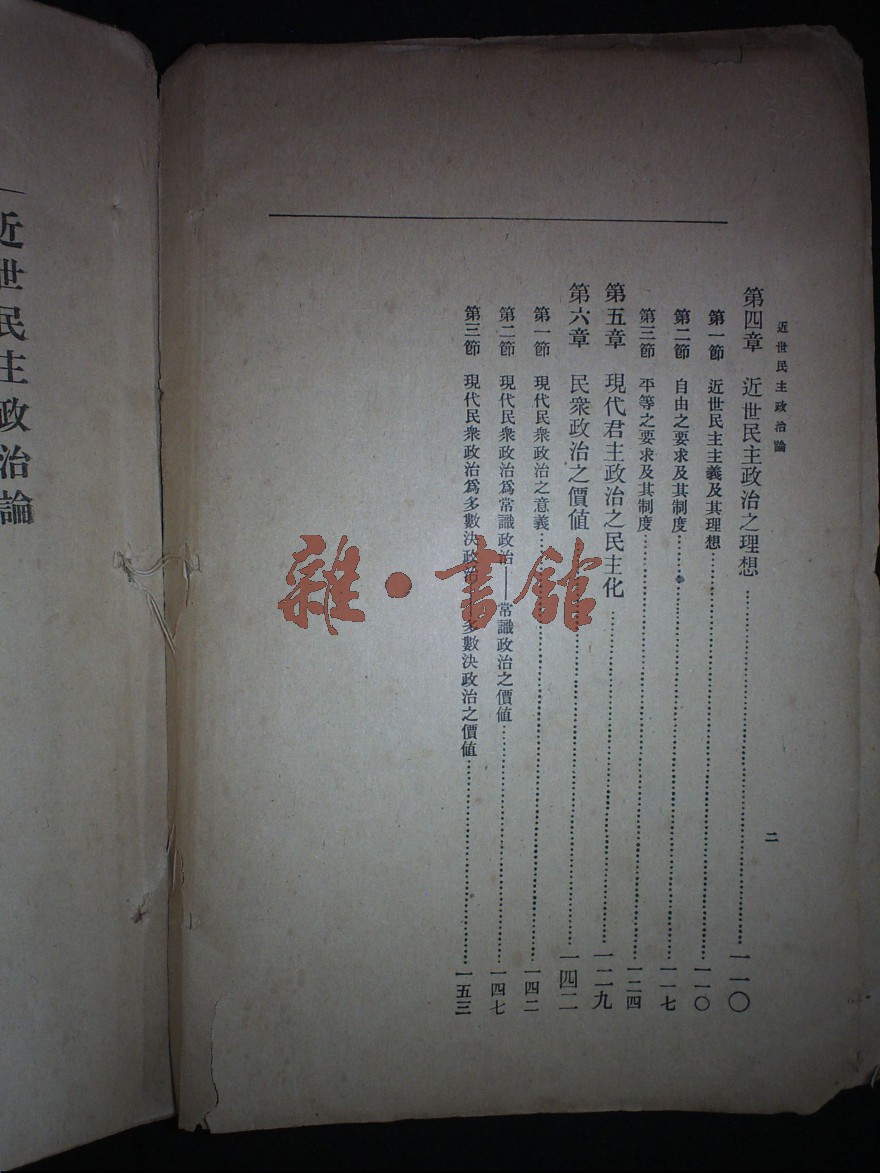 近世民主政治論
二
第四章 近世民主政治之理想…………一一〇
第一節 近世民主主義及其理想…………一一〇
第二節 自由之要求及其制度…………一一七
第三節 平等之要求及其制度…………一二四
第五章 現代君主政治之民主化…………一二九
第六章 民衆政治之價值…………一四二
第一節 現代民衆政治之意義…………一四二
第二節 現代民衆政治爲常識政治——常識政治之價值…………一四七
第三節 現代民衆政治爲多數決政治 多數決政治之價值…………一五三
近世民主政治論
雜·書館